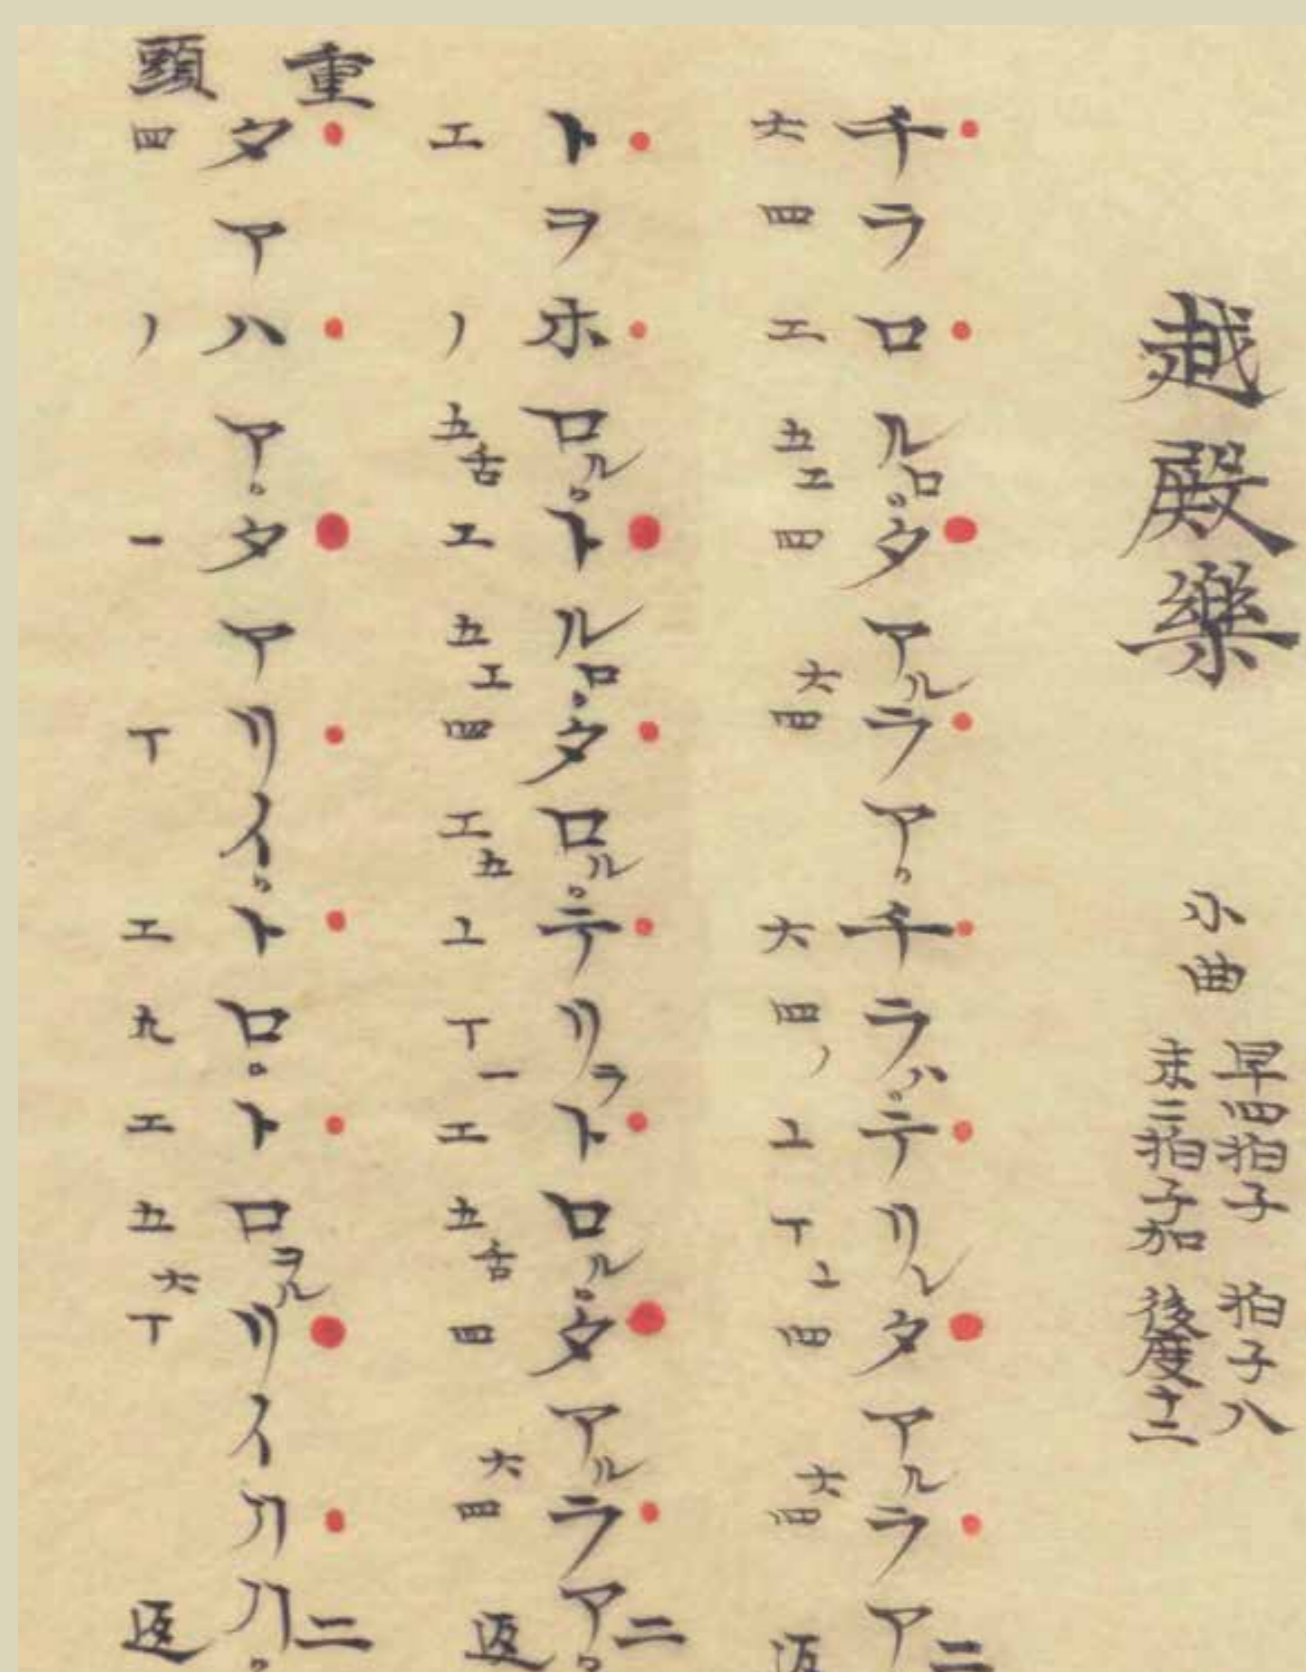 越殿樂
小曲
早四拍子 拍子八
末二拍子加 後度十二
チラロルロロタアルラアロチラハロテリレタアルラア二
六四エ五エ四六四六四ノユ丅ユ四六四返
トヲホロルロトルロロタロルロテリラトロルロタアルラアロ二
エノ五舌エ五エ四エ五ユ丅一エ五舌四六四返
重
タアハアロタアリイロトロロトロヲルリイ引ハロ二
頭
四ノ一丅エ九エ五六丅返